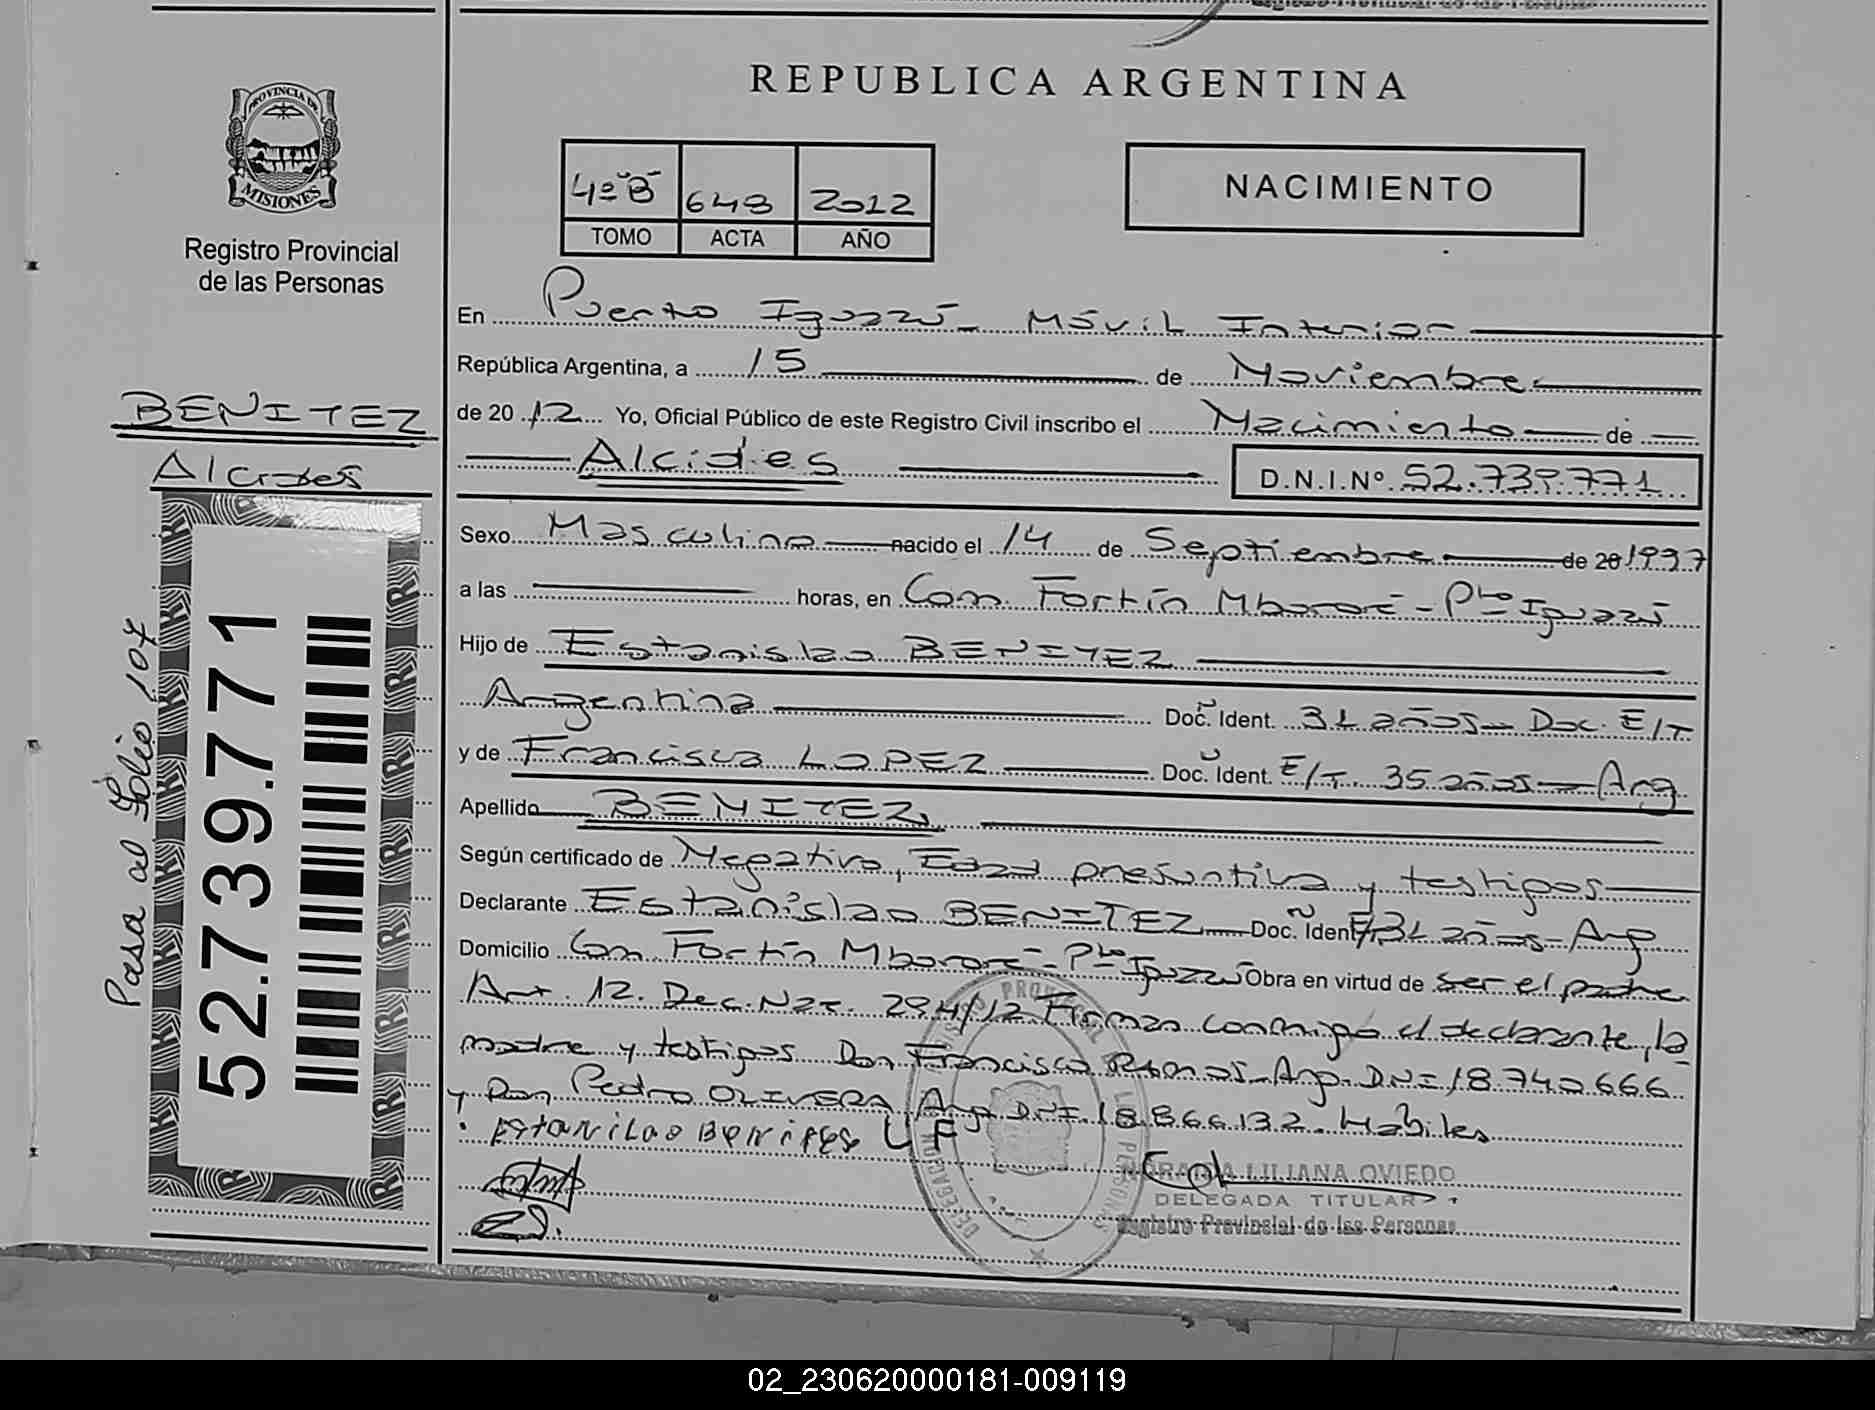 REPUBLICA ARGENTINA
PROVINCIA DE
MISIONES
Registro Provincial
de las Personas
4º"B" 648 2012
TOMO ACTA AÑO
NACIMIENTO
En Puerto Iguazú - Móvil Interior
República Argentina, a 15 de Noviembre
de 2012 Yo, Oficial Público de este Registro Civil inscribo el Nacimiento de
Alcides D.N.I.Nº 52.739.771
BENITEZ
Alcides
Sexo Masculino nacido el 14 de Septiembre de 20 1997
a las horas, en Com. Fortín Mbororé - Pto Iguazú
Hijo de Estanislao BENITEZ
Argentina Doc. Ident. 31 años - Doc. E/T
y de Francisca LOPEZ Doc. Ident. E/T. 35 años - Arg
Apellido BENITEZ
Según certificado de Negativo, Edad presuntiva y testigos
Declarante Estanislao BENITEZ Doc. Ident E/T 31 años - Arg
Domicilio Com. Fortín Mbororé - Pto Iguazú Obra en virtud de ser el padre
Art. 12. Dec. Nac. 294/12 Firman conmigo el declarante, la
madre y testigos Don Francisco Ramos - Arg. DNI 18.740.666
y Don Pedro OLIVERA Arg DNI 18.866.132. Hábiles
LF
LILIANA OVIEDO
DELEGADA TITULAR
Registro Provincial de las Personas
52.739.771
Pasa al Folio 107
02_230620000181-009119